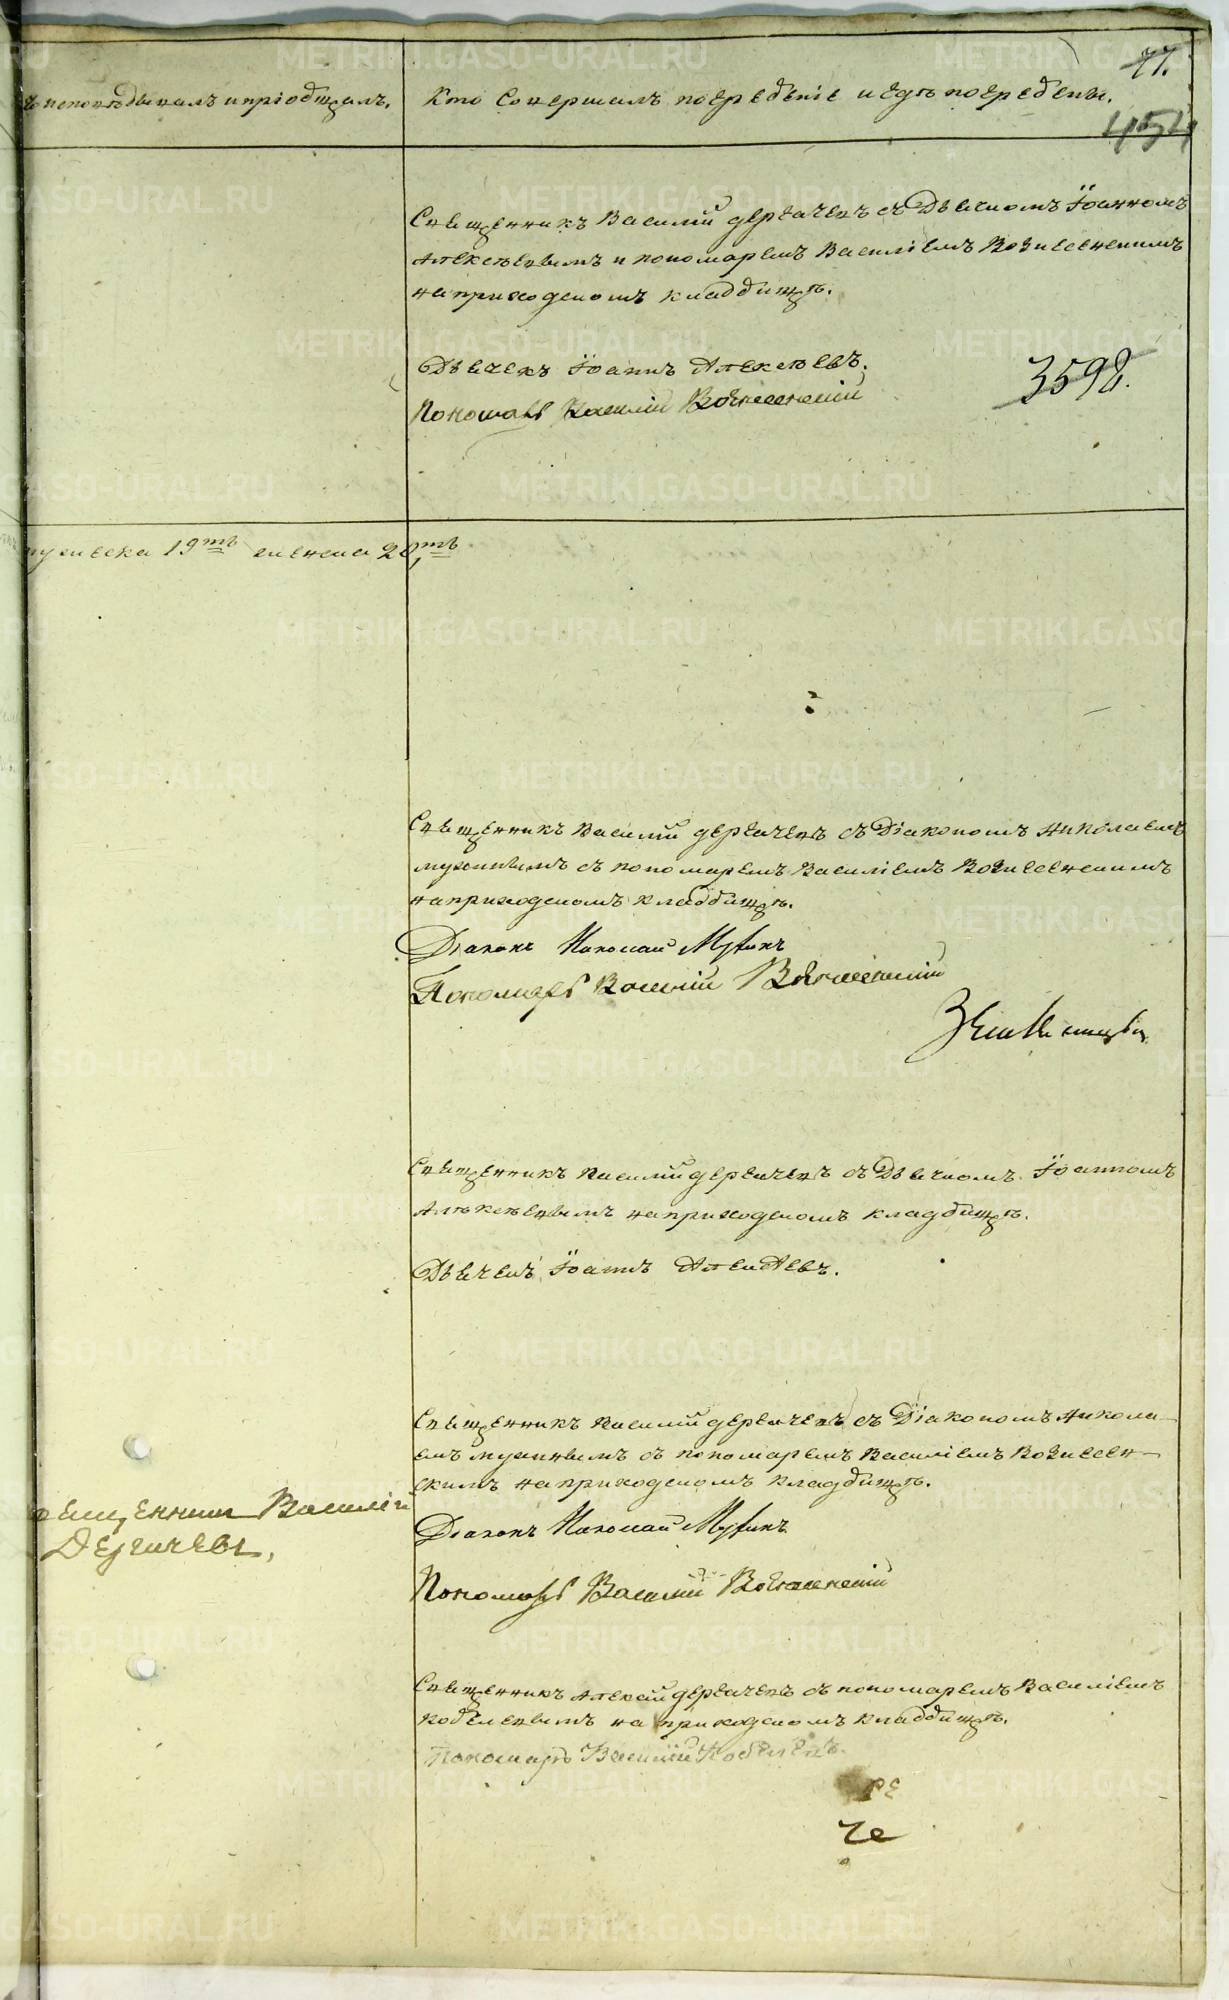 77.
ъ исповѣдывалъ и пріобщалъ.
Кто Совершалъ погребеніе и гдѣ погребены.
454
Священникъ Василій Дерячевъ съ Дьячкомъ Іоанномъ
Алексѣевымъ и пономаремъ Василіемъ Вознесенскимъ
на приходскомъ кладбищѣ.
Дьячекъ Іоаннъ Алексѣевъ.
3598.
Пономарь Василій Вознесенскій
19тъ 20тъ
Священникъ Василій Дерячевъ съ Діакономъ Николаемъ
Мухинымъ съ пономаремъ Василіемъ Вознесенскимъ
на приходскомъ кладбищѣ.
Діаконъ Николай Мухинъ
Пономарь Василій Вознесенскій
Священникъ Василій Дерячевъ съ Дьячкомъ Іоанномъ
Алексѣевымъ на приходскомъ кладбищѣ.
Дьячекъ Іоаннъ Алексѣевъ.
Священникъ Василій Дерячевъ съ Діакономъ Никола-
емъ Мухинымъ съ пономаремъ Василіемъ Вознесен-
скимъ на приходскомъ кладбищѣ.
Священникъ Василій
Дерячевъ,
Діаконъ Николай Мухинъ
Пономарь Василій Вознесенскій
Священникъ Алексій Дерячевъ съ пономаремъ Василіемъ
Кобелевымъ на приходскомъ кладбищѣ.
Пономарь Василій Кобелевъ.
METRIKI.GASO-URAL.RU